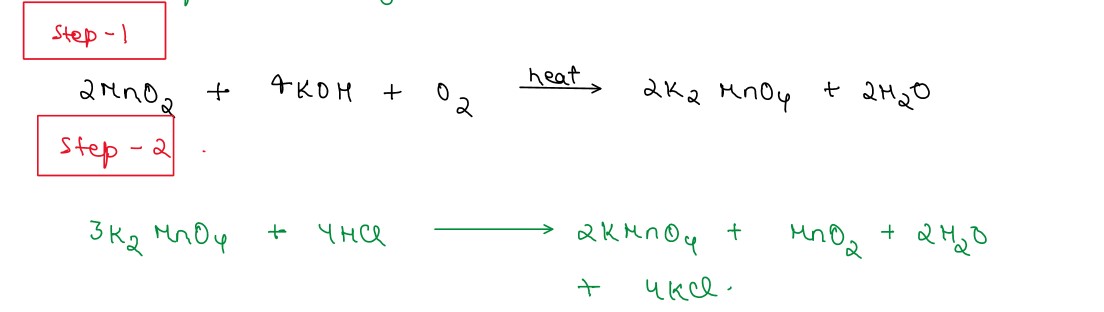 Step-1
2MnO₂ + 4KOH + O₂ heat→ 2K₂MnO₄ + 2H₂O
Step-2
3K₂MnO₄ + 4HCl → 2KMnO₄ + MnO₂ + 2H₂O
+ 4KCl.